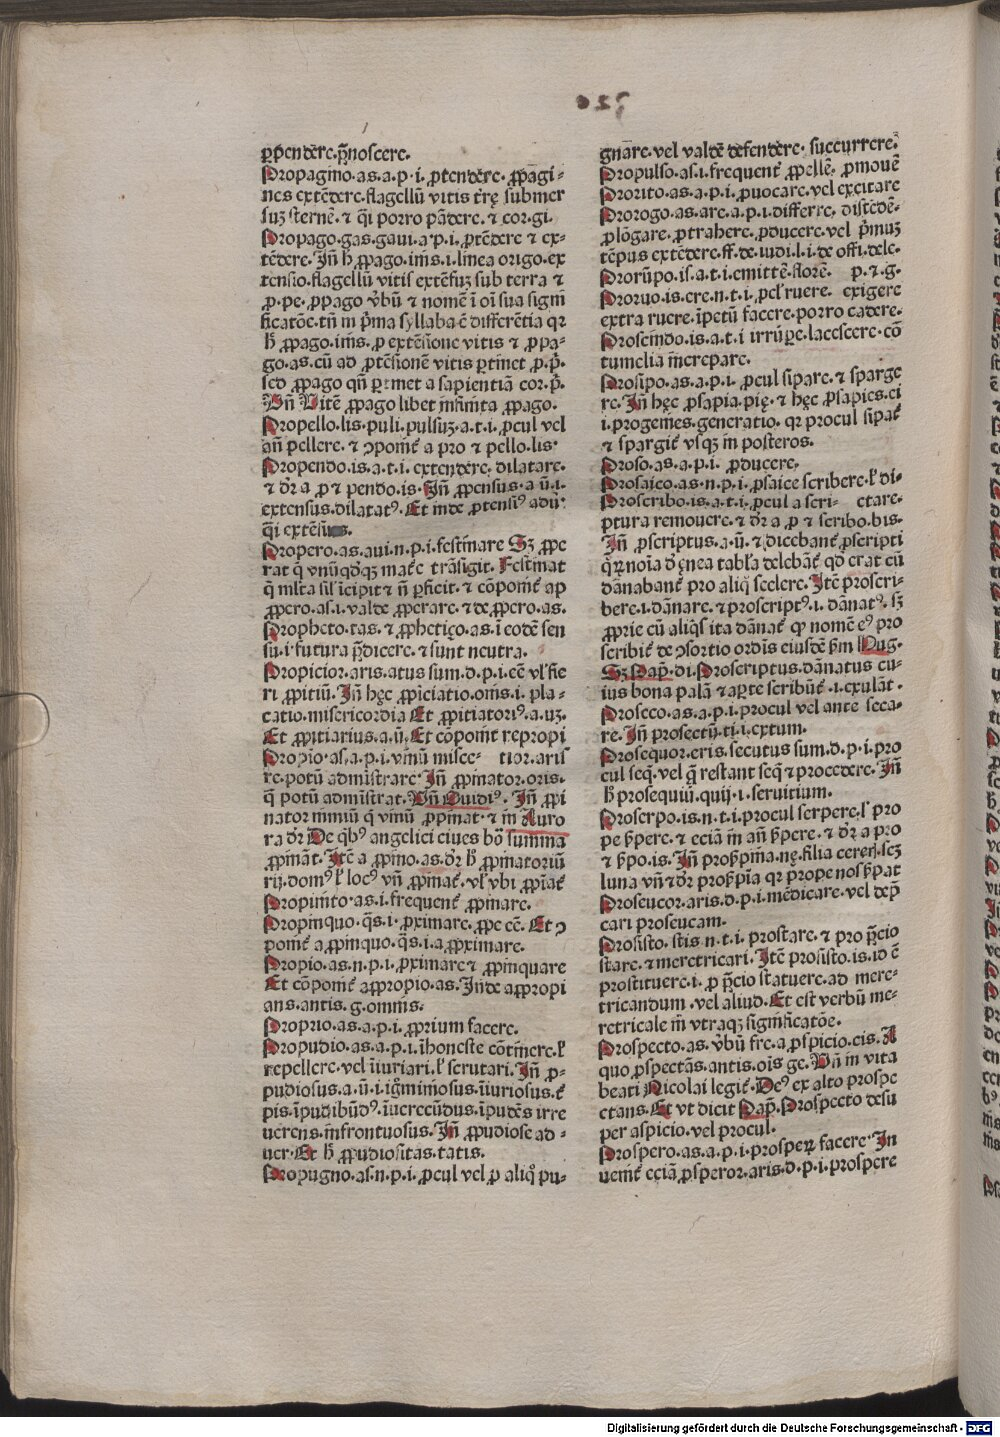 ꝑpendēre.p̄noscere.
Propagino.as.a.p.i.ꝓtendēre. ꝓpagi-
nes extēdere.flagellū vitis t̄rę submer
suʒ sternē.⁊ q̄i porro pādere.⁊ cor.gi.
Propago.gas.gaui.a.p.i.ꝓtēdere ⁊ ex-
tēdere.Jn̄ h̄ ꝓpago.inis.i.linea origo.ex
tensio.flagellū vitis extēsuʒ sub terra ⁊
ꝓ.pe.ꝓpago v̄bū ⁊ nomē ī oī sua signi
ficatōe.tn̄ in p̄ma syllaba ē differētia qꝛ
h̄ ꝓpago.inis.ꝓ extēsione vitis ⁊ ꝓpa-
go.as.cū ad ꝓtēsionē vitis ꝑtinet ꝓ.p̄.
sed ꝓpago qn̄ ꝑtinet a sapientiā cor.p̄.
Vn̄ Vitē ꝓpago libet infinita ꝓpago.
Propello.lis.puli.pulsuʒ.a.t.i.ꝓcul vel
an̄ pellere.⁊ ꝯponit̄ a pro ⁊ pello.lis.
Propendo.is.a.t.i.extendere. dilatare.
⁊ dr̄ a ꝓ ⁊ pendo.is.Jn̄ ꝓpensus.a.ū.i.
extensus.dilatatꝰ.Et inde ꝓtensiꝰ adū.
q̄i extēsius.
Propero.as.aui.n.p.i.festinare Sʒ ꝓpe
rat q̄ vnūqdqʒ mat̄e trāsigit.Festinat
q̄ ml̄ta sil̄ īcipit ⁊ n̄ ꝑficit.⁊ cōponit̄ ap
ꝓpero.as.i.valde ꝓperare.⁊ de ꝓpero.as.
Propheto.tas.⁊ ꝓphetiço.as.i eodē sen
su.i.futura p̄dicere.⁊ sunt neutra.
Propicior.aris.atus sum.d.p.i.eē vl̄ fie
ri ꝓpitiū.Jn̄ hęc ꝓpiciatio.onis.i. pla-
catio.misericordia Et ꝓpitiatoriꝰ.a.uʒ.
Et ꝓpitiarius.a.ū.Et cōponit̄ repropi
Propio.as.a.p.i.vinū misce- tior.aris
re.potū administrare.Jn̄ ꝓpinator.oris.
q̄ potū administrat.Vn̄ Ouidiꝰ. Jn̄ ꝓpi
nator nimiū q̄ vinū ꝓpinat.⁊ in Auro
ra dr̄ De qb̄ꝰ angelici ciues bō summa
ꝓpināt.Jtē a ꝓpino.as.dr̄ h̄ ꝓpinatoriū
rij.domꝰ l̄ locꝰ vn̄ ꝓpinat̄.vl̄ vbi ꝓpīat̄
Propinto.as.i.frequent̄ ꝓpinare.
Propinquo.q̄s.i.ꝓximare.ꝓpe eē. Et ꝯ
ponit̄ a ꝓpinquo.q̄s.i.a ꝓproximare.
Propio.as.n.p.i.ꝓximare ⁊ ꝓpinquare
Et cōponit̄ aꝓpropio.as.Jnde aꝓpropi
ans.antis.g.omnis.
Proprio.as.a.p.i.ꝓprium facere.
Propudio.as.a.p.i.īhoneste cōtinere.l̄
repellere.vel iniuriari.l̄ scrutari.Jn̄ ꝓ-
pudiosus.a.ū.i.ign̄iminosus.iniuriosus.t̄
pis.īpudibūdꝰ.īuerecūdus.īpudēs irre
uerens.infrontuosus.Jn̄ ꝓpudiose ad-
uer.Et h̄ ꝓpudiositas.tatis.
Propugno.as.n.p.i.ꝓcul vel ꝓ aliqo pu-
gnare.vel valdē defendēre. succurrere.
Propulso.as.i.frequent̄ ꝓpellē. ꝓmouē
Prorito.as.a.p.i.ꝓuocare.vel excitare
Prorogo.as.are.a.p.i.differre. distēdē-
ꝓlōgare.ꝓtrahere.ꝓducere.vel p̄muʒ
tēpus extēdere.ff.de.iudi.l.i.de offi.dele.
Prorūpo.is.a.t.i.emittē.florē. p.⁊.g.
Proruo.is.ere.n.t.i.ꝓcl̄ ruere. exigere
extra ruere.īpetū facere.porro cadere.
Proscindo.is.a.t.i irrūꝑe.lacescere.cō
tumelia increpare.
Prosipo.as.a.p.i.ꝓcul sipare.⁊ sparge
re.Jn̄ hęc ꝓsapia.pię.⁊ hęc ꝓsapies.ei
i.progenies.generatio. qꝛ procul sipat̄
⁊ spargit̄ vsqʒ in posteros.
Proso.as.a.p.i. ꝓducere.
Prosaico.as.n.p.i.ꝓsaice scribere.l̄ di-
Proscribo.is.a.t.i.ꝓcul a scri- ctare.
ptura remouere.⁊ dr̄ a ꝓ ⁊ scribo.bis.
Jn̄ ꝓscriptus.a.ū.⁊ dicebant̄ ꝓscripti
qꝝ noīa ī ęnea tabl̄a delebāt̄ qd erat cū
dānabant̄ pro aliq̄ scelere.Jtē proscri-
bere.i.dānare.⁊ proscriptꝰ.i.dānatꝰ.sʒ
ꝓprie cū aliqs ita dānat̄ qꝛ nomē eꝰ pro
scribit̄ de ꝯsortio ordīs eiusdē s̄m Hug.
Sʒ Pap̄.di.Proscriptus.dānatus cu-
ius bona palā ⁊ aꝑte scribūt̄.i.exulāt̄.
Proseco.as.a.p.i.procul vel ante seca-
re.Jn̄ prosectū.ti.i.extum.
Prosequor.eris.secutus sum.d.p.i.pro
cul seq̄.vel q̄ restant seq̄ ⁊ procedere.Jn̄
h̄ prosequiū.quij.i.seruitium.
Proserpo.is.n.t.i.procul serpere.l̄ pro
pe s̄pere.⁊ eciā in an̄ s̄pere.⁊ dr̄ a pro
⁊ s̄po.is.Jn̄ pros̄pina.nę.filia cereris.scʒ
luna vn̄ ⁊ dr̄ pros̄pīa qꝛ prope nos s̄pat
Proseucor.aris.d.p.i.mēdicare.vel dep̄
cari proseucam.
Prosisto.stis.n.t.i.prostare.⁊ pro p̄cio
stare.⁊ meretricari.Jtē prosisto.is.id ē
prostituere.i.ꝓ p̄cio statuere.ad mere-
tricandum.vel aliud.Et est verbū me-
retricale in vtraqʒ significatōe.
Prospecto.as.v̄bū fre.a ꝓspicio.cis.A
quo ꝓspectās.antis.oīs ge.Vn̄ in vita
beati Nicolai legit̄.Deꝰ ex alto prospe
ctans.Et vt dicit Pap̄.Prospecto desu
per aspicio.vel procul.
Prospero.as.a.p.i.prosperꝝ facere.Jn
uenit̄ eciā ꝓsperor.aris.d.p.i.prospere
Digitalisierung gefördert durch die Deutsche Forschungsgemeinschaft - DFG